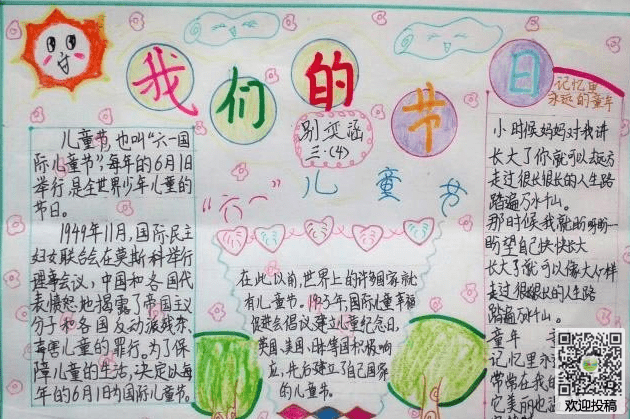 我们的节日
别亚涵
三·(4)
“六一”儿童节
儿童节,也叫“六一国
际儿童节”,每年的6月1日
举行,是全世界少年儿童的
节日。
1949年11月,国际民主
妇女联合会在莫斯科举行
理事会议,中国和各国代
表愤怒地揭露了帝国主义
分子和各国反动派残杀、
毒害儿童的罪行。为了保
障儿童的生活,决定以每
年的6月1日为国际儿童节。
在此以前,世界上的许多国家就
有儿童节。1925年,国际儿童幸福
促进会倡议建立儿童纪念日,
英国、美国、日本等国积极响
应,先后建立了自己国家
的儿童节。
记忆里
永远的童年
小时候妈妈对我讲
长大了你就可以去远方
走过很长很长的人生路
踏遍万水千山。
那时候我就盼啊盼
盼望自己快快长大
长大了就可以像大人一样
走过很长很长的人生路
踏遍万水千山。
童年
记忆里永
常常在我的
它美丽也
欢迎投稿